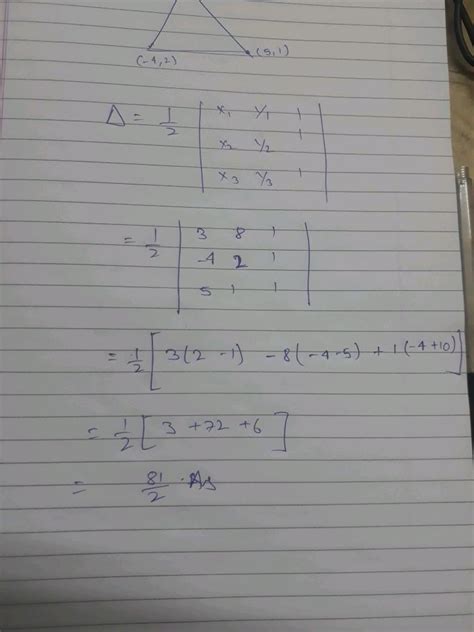 (-4,2) (5,1)
Δ = 1/2 | x₁ y₁ 1
x₂ y₂ 1
x₃ y₃ 1 |
= 1/2 | 3 8 1
-4 2 1
5 1 1 |
= 1/2 [ 3(2 - 1) - 8(-4-5) + 1(-4+10) ]
= 1/2 [ 3 + 72 + 6 ]
= 81/2